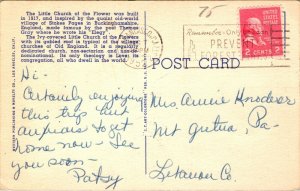 The Little Church of the Flower was built
in 1917, and inspired by the quaint old-world
village of Stokes Poges in Buckinghamshire,
England, made famous by the poet Thomas
Gray where he wrote his "Elegy".
The ivy-covered Little Church of the Flowers
with its gabled roof is typical of the village
churches of Old England. It is a regularly
dedicated church, non-sectarian and undenominational. Its only theology is Love; its
congregation, all who dwell in the world.
75
Remember - Only you can
PREVENT
2 CENTS 2
POST CARD
Hi-
Certainly enjoying
this trip but
anxious to get
home now - See
you soon -
Patsy
Mrs Annie
Mt Gretna, Pa-
Lebanon Co.